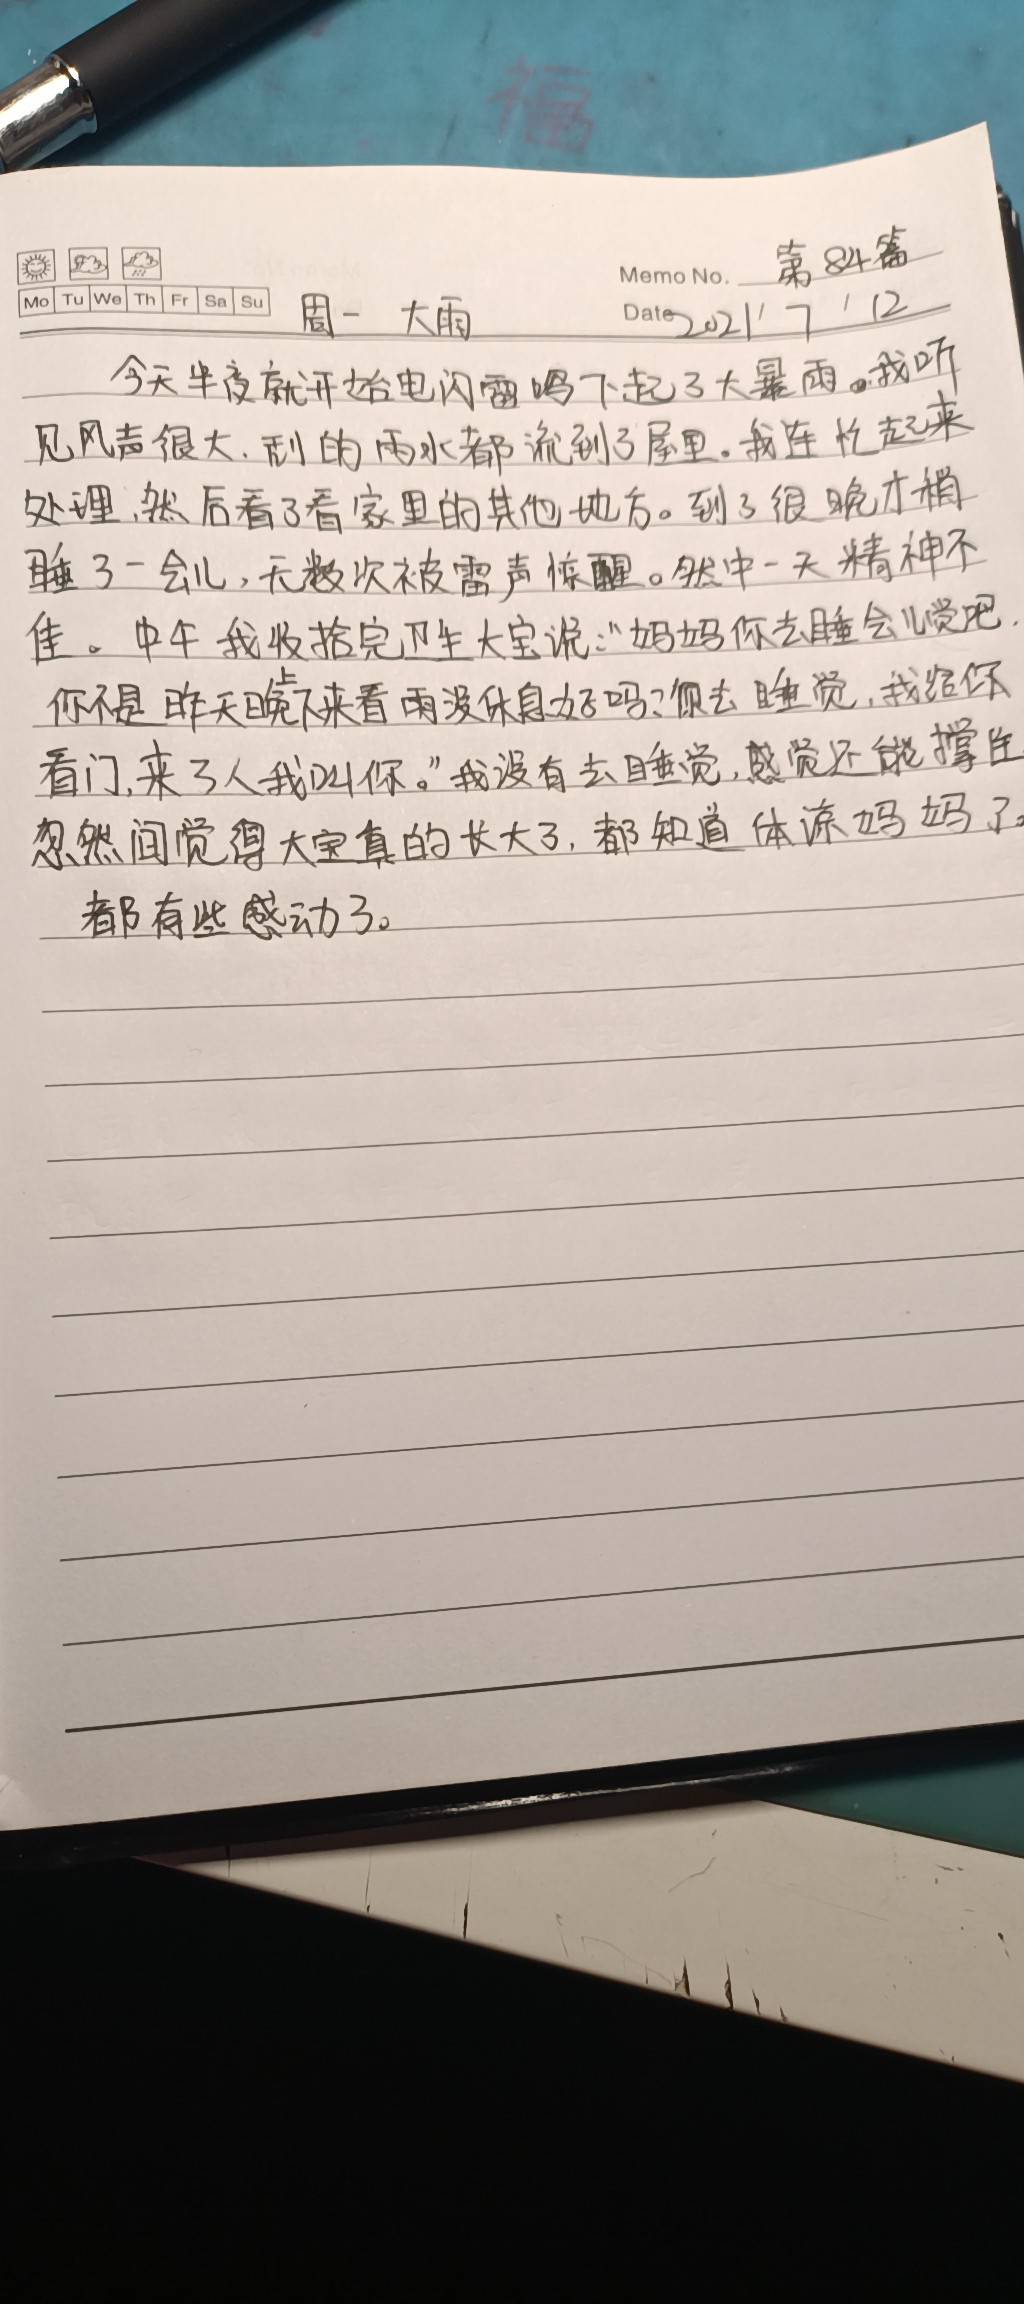 福
Memo No. 第84篇
Mo Tu We Th Fr Sa Su 周一 大雨 Date 2021/7/12
今天半夜就开始电闪雷鸣下起了大暴雨。我听
见风声很大,刮的雨水都流到了屋里。我连忙起来
处理,然后看了看家里的其他地方。到了很晚才稍
睡了一会儿,无数次被雷声惊醒。然中一天精神不
佳。中午我收拾完卫生大宝说:"妈妈你去睡会儿觉吧.
你不是昨天晚上下来看雨没休息好吗?你去睡觉,我给你
看门,来了人我叫你。"我没有去睡觉,感觉还能撑住
忽然间觉得大宝真的长大了,都知道体谅妈妈了。
都有些感动了。